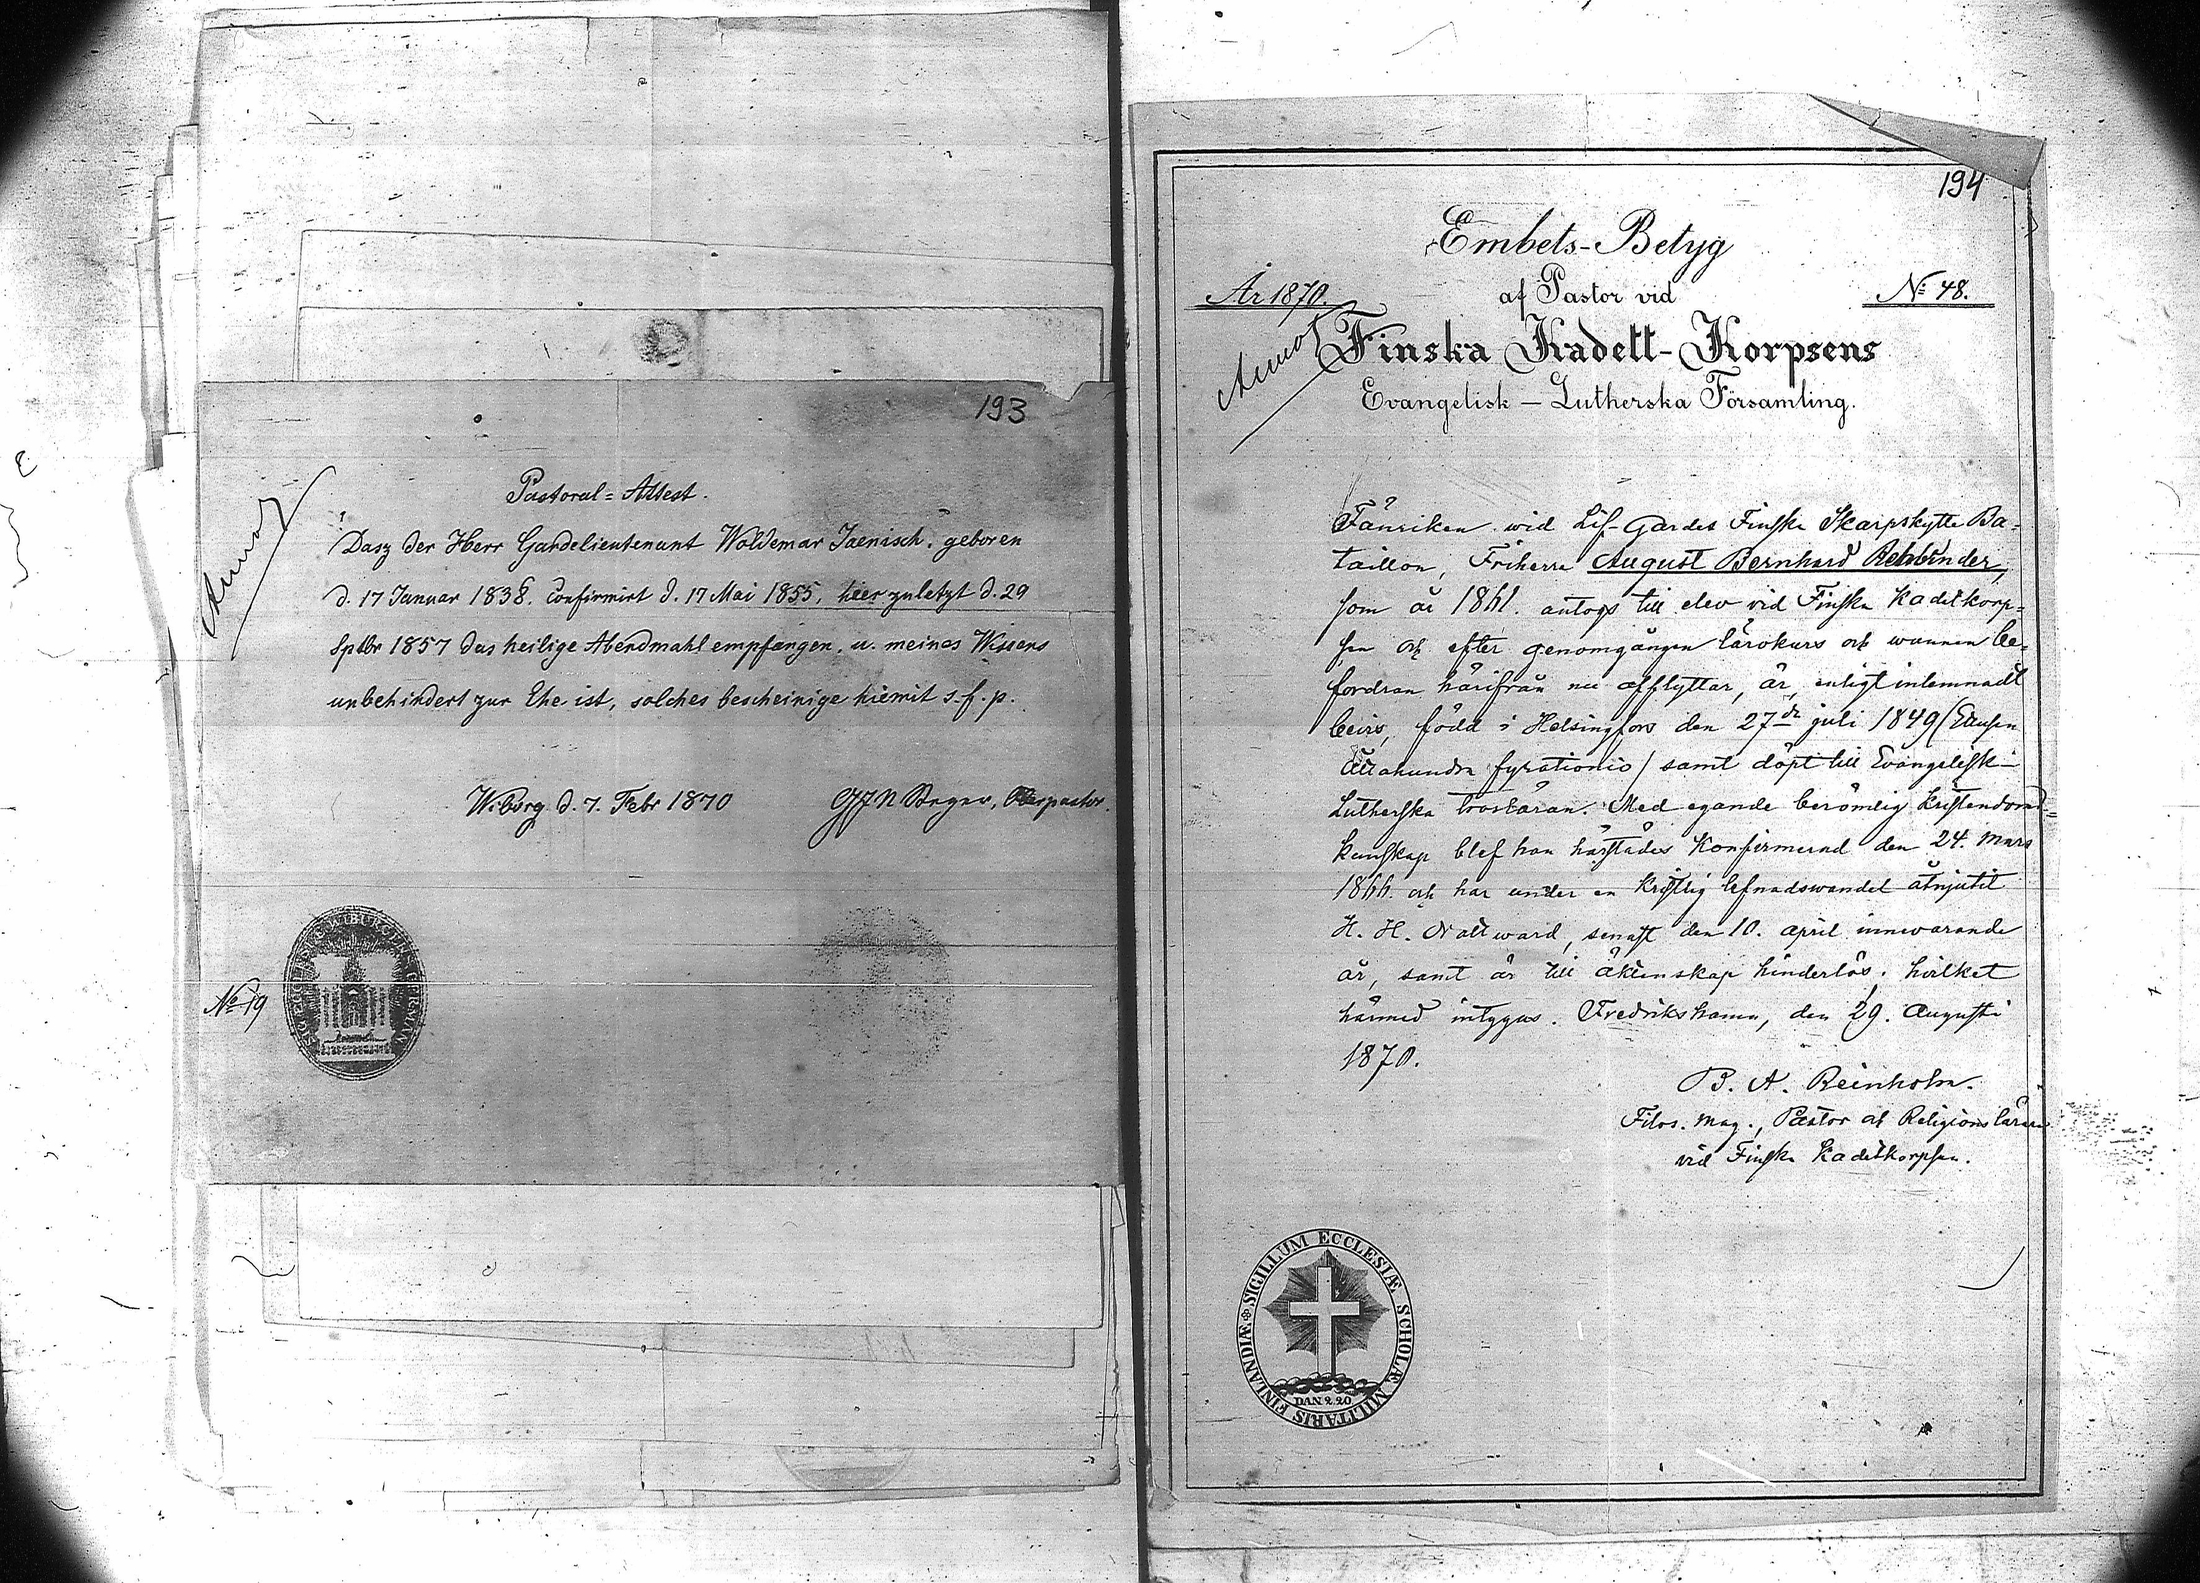 193
Pastoral = Attest.
Dasz der Herr Gardelieutenant Woldemar Jaenisch, geboren
d. 17 Januar 1838, confirmirt d. 17 Mai 1855, hier zuletzt d. 29
Sptbr 1857 das heilige Abendmahl empfangen, u. meines Wissens
unbehindert zur Ehe ist, solches bescheinige hiemit s. f. p.
Wiborg d. 7. Febr 1870
Oberpastor.
No 19
194
Embets-Betyg
År 1870.
af Pastor vid
No 48.
Finska Kadett-Korpsens
Evangelisk - Lutherska Församling.
Fänriken wid Lif-Gardes Finska Skarpskytte Ba-
taillon, Friherre August Bernhard Rehbinder,
som år 1861. antogs till elev vid Finska Kadetkorp=
sen och efter genomgången lärokurs och wunnen be-
fordran härifrån nu afflyttar, är, enligt inlemnadt
bevis, född i Helsingfors den 27de juli 1849 (Ettusen
åttahundra fyrationio) samt döpt till Evangelisk-
Lutherska trosläran. Med egande berömlig kristendoms=
kunskap blef han härstädes Konfirmerad den 24. Mars
1866. och har under en kristlig lefnadswandel åtnjutit
H. H. Nattward, senast den 10. april innevarande
år, samt är till äktenskap hinderlös; hvilket
härmed intygas. Fredrikshamn, den 29. Augusti
1870.
B. A. Reinholm.
Filos. Mag., Pastor och Religionslärare
vid Finska Kadetkorpsen.
SIGILLUM ECCLESIÆ SCHOLÆ MILITARIS FINLANDIÆ
DAN 2 20